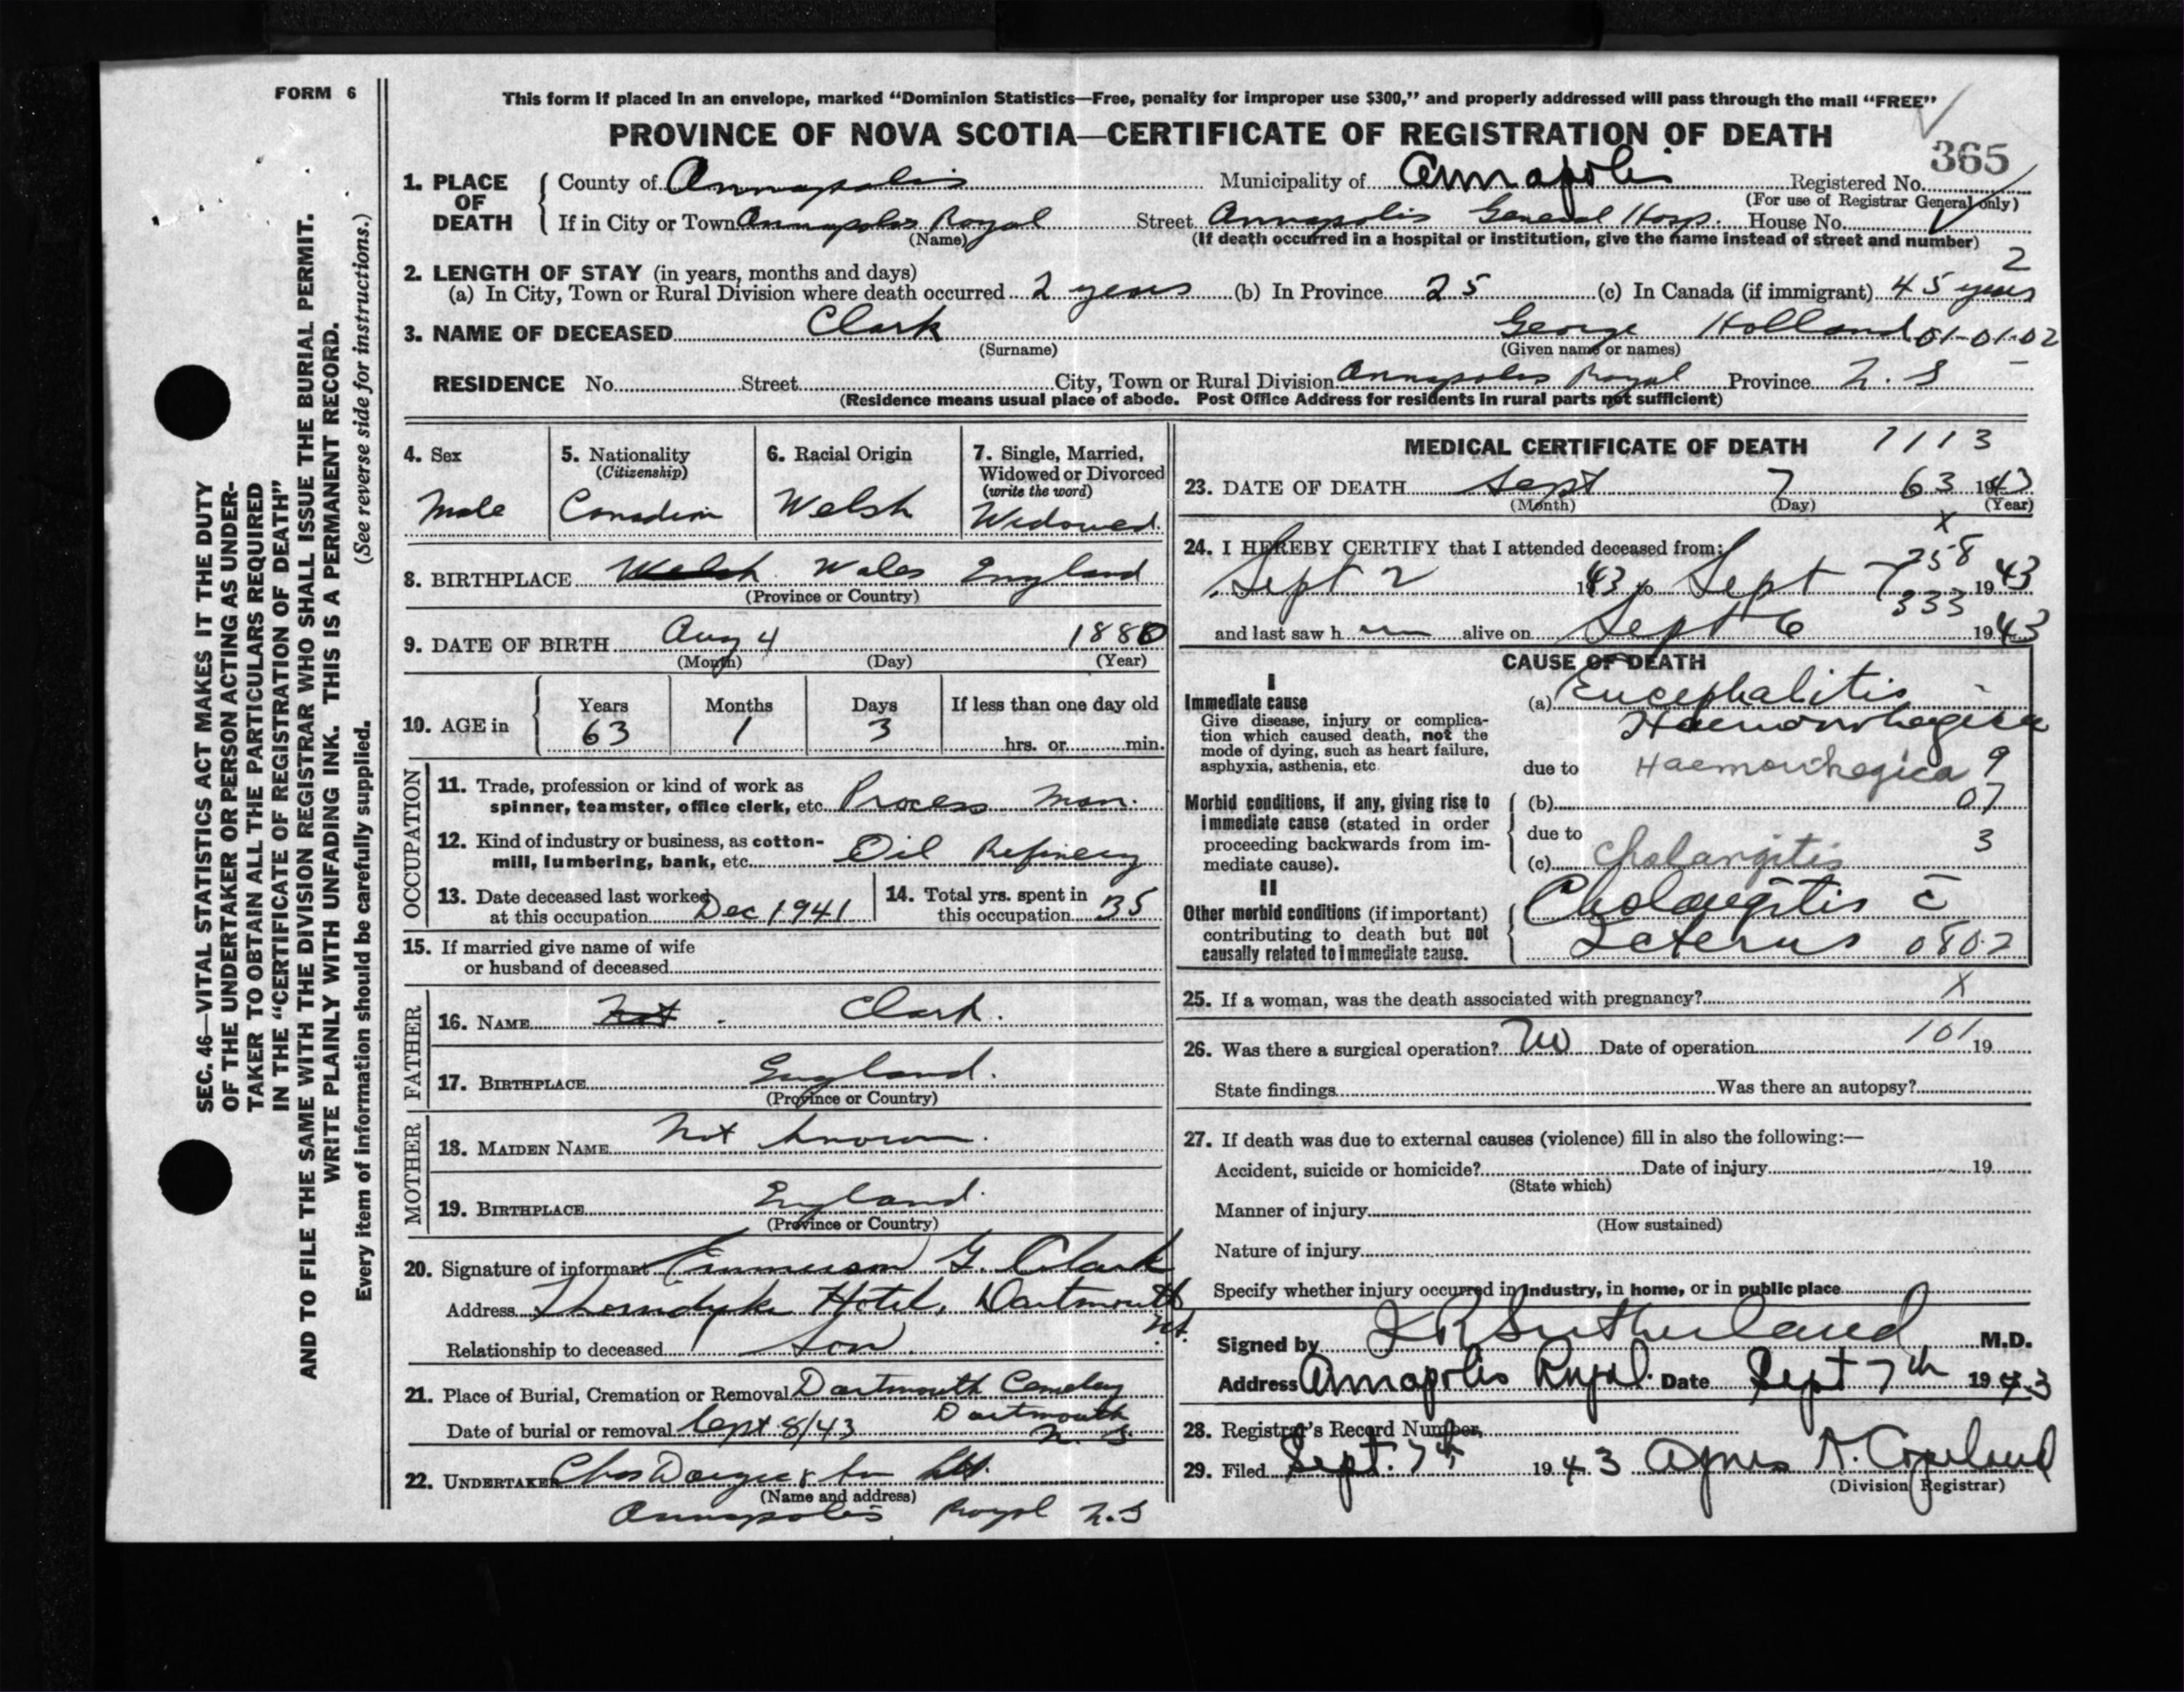 FORM 6
This form if placed in an envelope, marked “Dominion Statistics—Free, penalty for improper use $300,” and properly addressed will pass through the mail “FREE”
PROVINCE OF NOVA SCOTIA—CERTIFICATE OF REGISTRATION OF DEATH
365
1. PLACE OF DEATH
County of Annapolis Municipality of Annapolis Registered No.
(For use of Registrar General only)
If in City or Town Annapolis Royal Street Annapolis General Hosp. House No.
(Name) (If death occurred in a hospital or institution, give the name instead of street and number)
2
2. LENGTH OF STAY (in years, months and days)
(a) In City, Town or Rural Division where death occurred 2 years (b) In Province 25 (c) In Canada (if immigrant) 45 years
3. NAME OF DECEASED Clark George Holland 01-01-02
(Surname) (Given name or names)
RESIDENCE No. Street City, Town or Rural Division Annapolis Royal Province N. S
(Residence means usual place of abode. Post Office Address for residents in rural parts not sufficient)
4. Sex
Male
5. Nationality
(Citizenship)
Canadian
6. Racial Origin
Welsh
7. Single, Married,
Widowed or Divorced
(write the word)
Widowed.
8. BIRTHPLACE Welsh Wales England
(Province or Country)
9. DATE OF BIRTH Aug 4 1880
(Month) (Day) (Year)
10. AGE in
Years Months Days If less than one day old
63 1 3 hrs. or min.
OCCUPATION
11. Trade, profession or kind of work as
spinner, teamster, office clerk, etc. Process Man.
12. Kind of industry or business, as cotton-
mill, lumbering, bank, etc. Oil Refinery
13. Date deceased last worked
at this occupation Dec 1941
14. Total yrs. spent in
this occupation 35
15. If married give name of wife
or husband of deceased
FATHER
16. NAME Not - Clark.
17. BIRTHPLACE England.
(Province or Country)
MOTHER
18. MAIDEN NAME Not known.
19. BIRTHPLACE England.
(Province or Country)
20. Signature of informant Emmerson G. Clark
Address Thorndyke Hotel, Dartmouth
N.S.
Relationship to deceased Son.
21. Place of Burial, Cremation or Removal Dartmouth Cemetery
Dartmouth
Date of burial or removal Sept 8/43 N. S.
22. UNDERTAKER Chas & Son Ltd.
(Name and address)
Annapolis Royal N.S
MEDICAL CERTIFICATE OF DEATH 1113
23. DATE OF DEATH Sept 7 63 1943
(Month) (Day) (Year)
X
24. I HEREBY CERTIFY that I attended deceased from:
258
Sept 2 1943 to Sept 7 1943
333
and last saw h im alive on Sept 6 1943
CAUSE OF DEATH
I
Immediate cause
Give disease, injury or complica-
tion which caused death, not the
mode of dying, such as heart failure,
asphyxia, asthenia, etc.
(a) Encephalitis -
Haemorrhagica
due to Haemorrhagica 9
Morbid conditions, if any, giving rise to
immediate cause (stated in order
proceeding backwards from im-
mediate cause).
(b) 07
due to 3
(c) Cholangitis
II
Other morbid conditions (if important)
contributing to death but not
causally related to immediate cause.
Cholangitis c̄
Icterus 0802
25. If a woman, was the death associated with pregnancy? X
26. Was there a surgical operation? No Date of operation 101 19
State findings Was there an autopsy?
27. If death was due to external causes (violence) fill in also the following:—
Accident, suicide or homicide? Date of injury 19
(State which)
Manner of injury
(How sustained)
Nature of injury
Specify whether injury occurred in industry, in home, or in public place
Signed by Sutherland M.D.
Address Annapolis Royal. Date Sept 7th 1943
28. Registrar's Record Number
29. Filed Sept. 7th 1943 Agnes N. Copeland
(Division Registrar)
SEC. 46—VITAL STATISTICS ACT MAKES IT THE DUTY
OF THE UNDERTAKER OR PERSON ACTING AS UNDER-
TAKER TO OBTAIN ALL THE PARTICULARS REQUIRED
IN THE “CERTIFICATE OF REGISTRATION OF DEATH”
AND TO FILE THE SAME WITH THE DIVISION REGISTRAR WHO SHALL ISSUE THE BURIAL PERMIT.
WRITE PLAINLY WITH UNFADING INK. THIS IS A PERMANENT RECORD.
Every item of information should be carefully supplied. (See reverse side for instructions.)